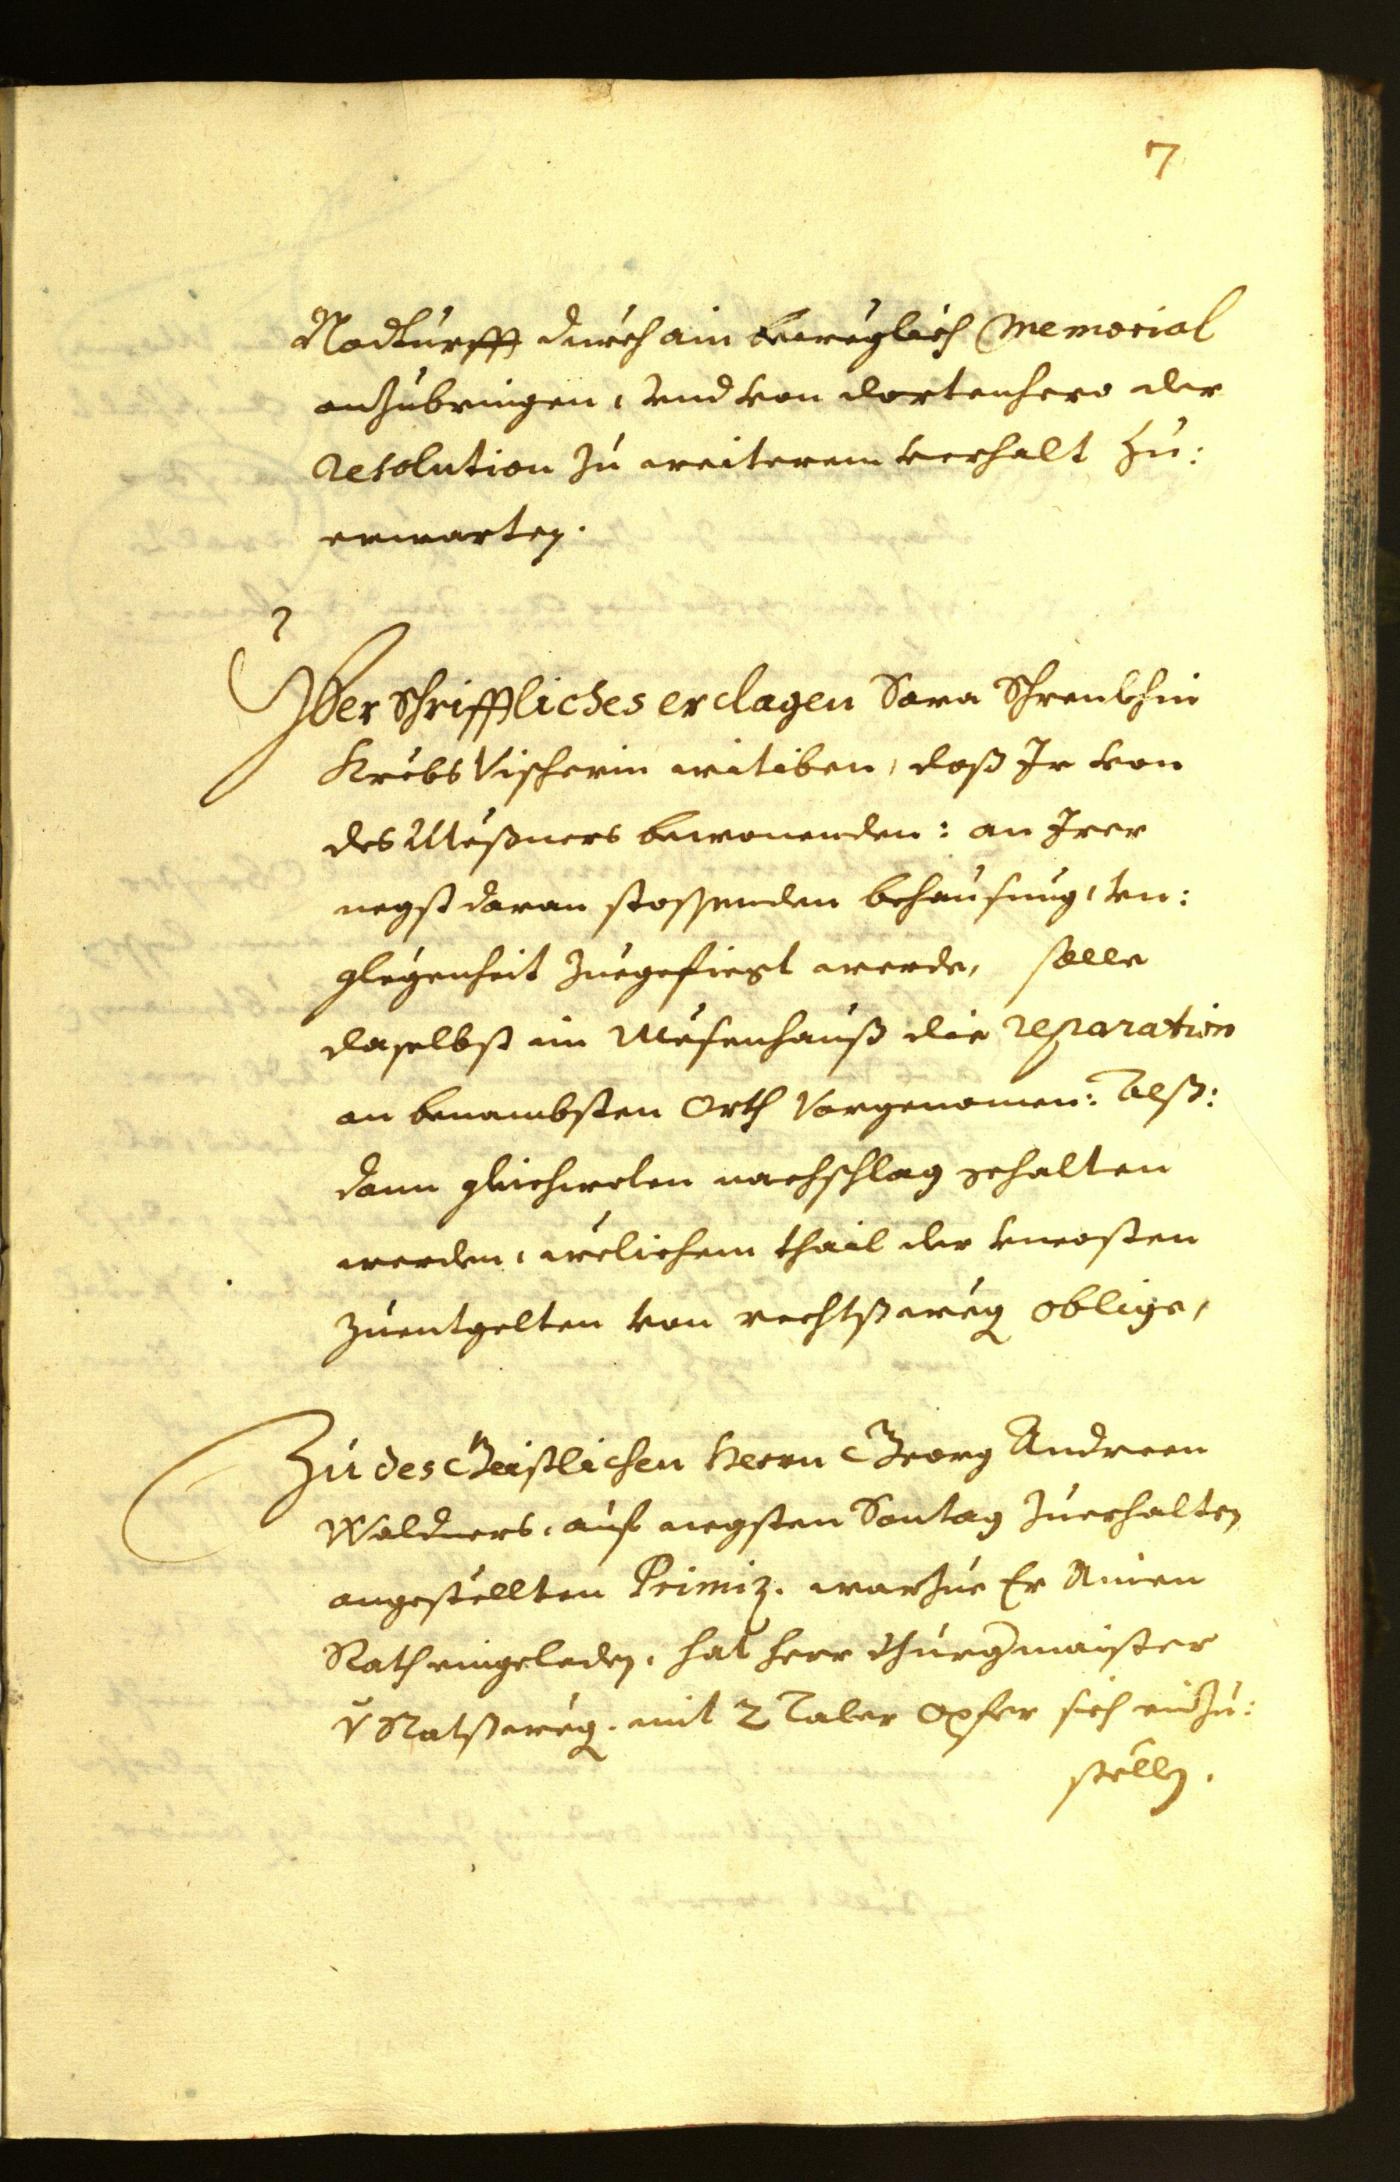 7
Nodturfft durch ain beweglich Memorial
anzubringen, und von dortenhero der
resolution zu weiterem verhalt zu:
erwarten.
Yber schrifftliches erclagen Sara Schrenkhin
Krebs Vischerin witiben, daß Ir von
des Mëßners bewonenden: an Irer
negst daran stossenden behausung, un:
glegenheit zuegefiegt werde, solle
daselbst im Mesenhauß die reparation
an benambsten Orth Vorgenomen: Alß:
dann gleichwolen nachschlag gehalten
werden, welichem thail der uncosten
zuentgelten von rechtßweeg oblige,
Zu des Geistlichen Herrn Georg Andreen
Waldners, auf negsten Sontag zuerhalten
angestellten Primiz. warzue Er Ainen
Rath eingeladen, hat herr Burgmaister
v Ratßweeg. mit 2 Taler Opfer sich einzu:
stellen.